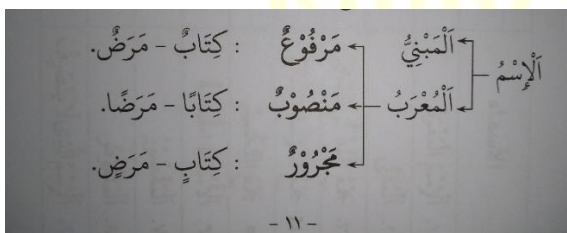 اَلْإِسْمُ
اَلْمَبْنِيُّ
اَلْمُعْرَبُ
مَرْفُوْعٌ : كِتَابٌ - مَرَضٌ.
مَنْصُوْبٌ : كِتَابًا - مَرَضًا.
مَجْرُوْرٌ : كِتَابٍ - مَرَضٍ.
- ١١ -